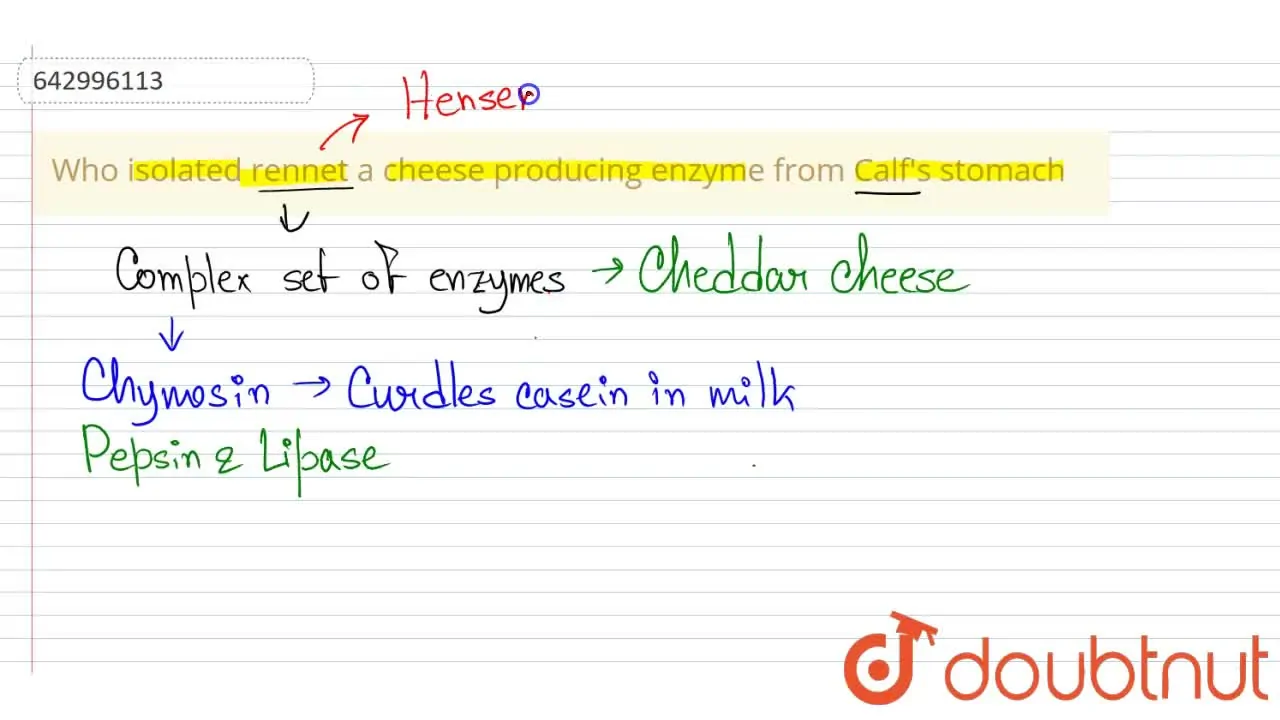 642996113
Henser
Who isolated rennet a cheese producing enzyme from Calf's stomach
Complex set of enzymes → Cheddar cheese
Chymosin → Curdles casein in milk
Pepsin & Lipase
doubtnut